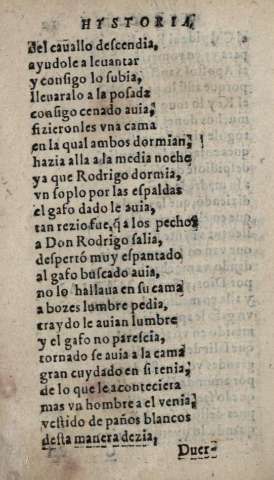 HYSTORIA
del cauallo descendia,
ayudole a leuantar
y consigo lo subia,
lleuaralo a la posada
consigo cenado auia,
fizieronles vna cama
en la qual ambos dormian,
hazia alla a la media noche
ya que Rodrigo dormia,
vn soplo por las espaldas
el gafo dado le auia,
tan rezio fue, q̃ a los pechos
a Don Rodrigo salia,
despertó muy espantado
al gafo buscado auia,
no lo hallaua en su cama
a bozes lumbre pedia,
traydo le auian lumbre
y el gafo no parescia,
tornado se auia a la cama
gran cuydado en si tenia,
de lo que le aconteciera
mas vn hombre a el venia,
vestido de paños blancos
desta manera dezia,
Duer-